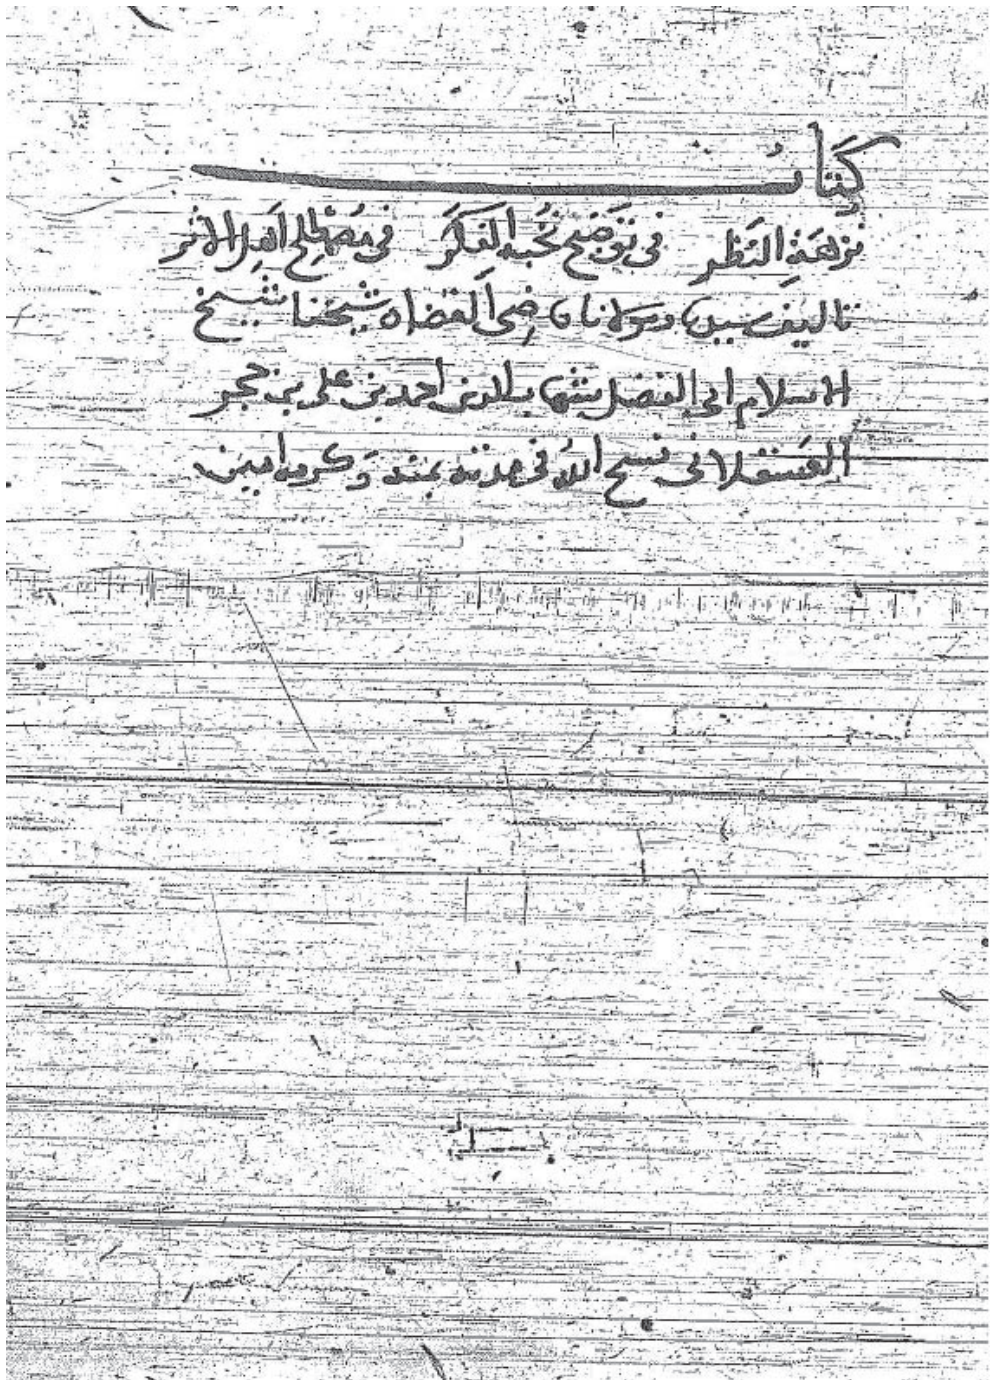 كتاب
نزهة النظر في توضيح نخبة الفكر في مصطلح اهل الاثر
تاليف سيدنا ومولانا قاضى القضاه شيخنا شيخ
الاسلام ابى الفضل شهاب الدين احمد بن على بن حجر
العسقلانى فسح الله فى مدته بمنه وكرمه امين